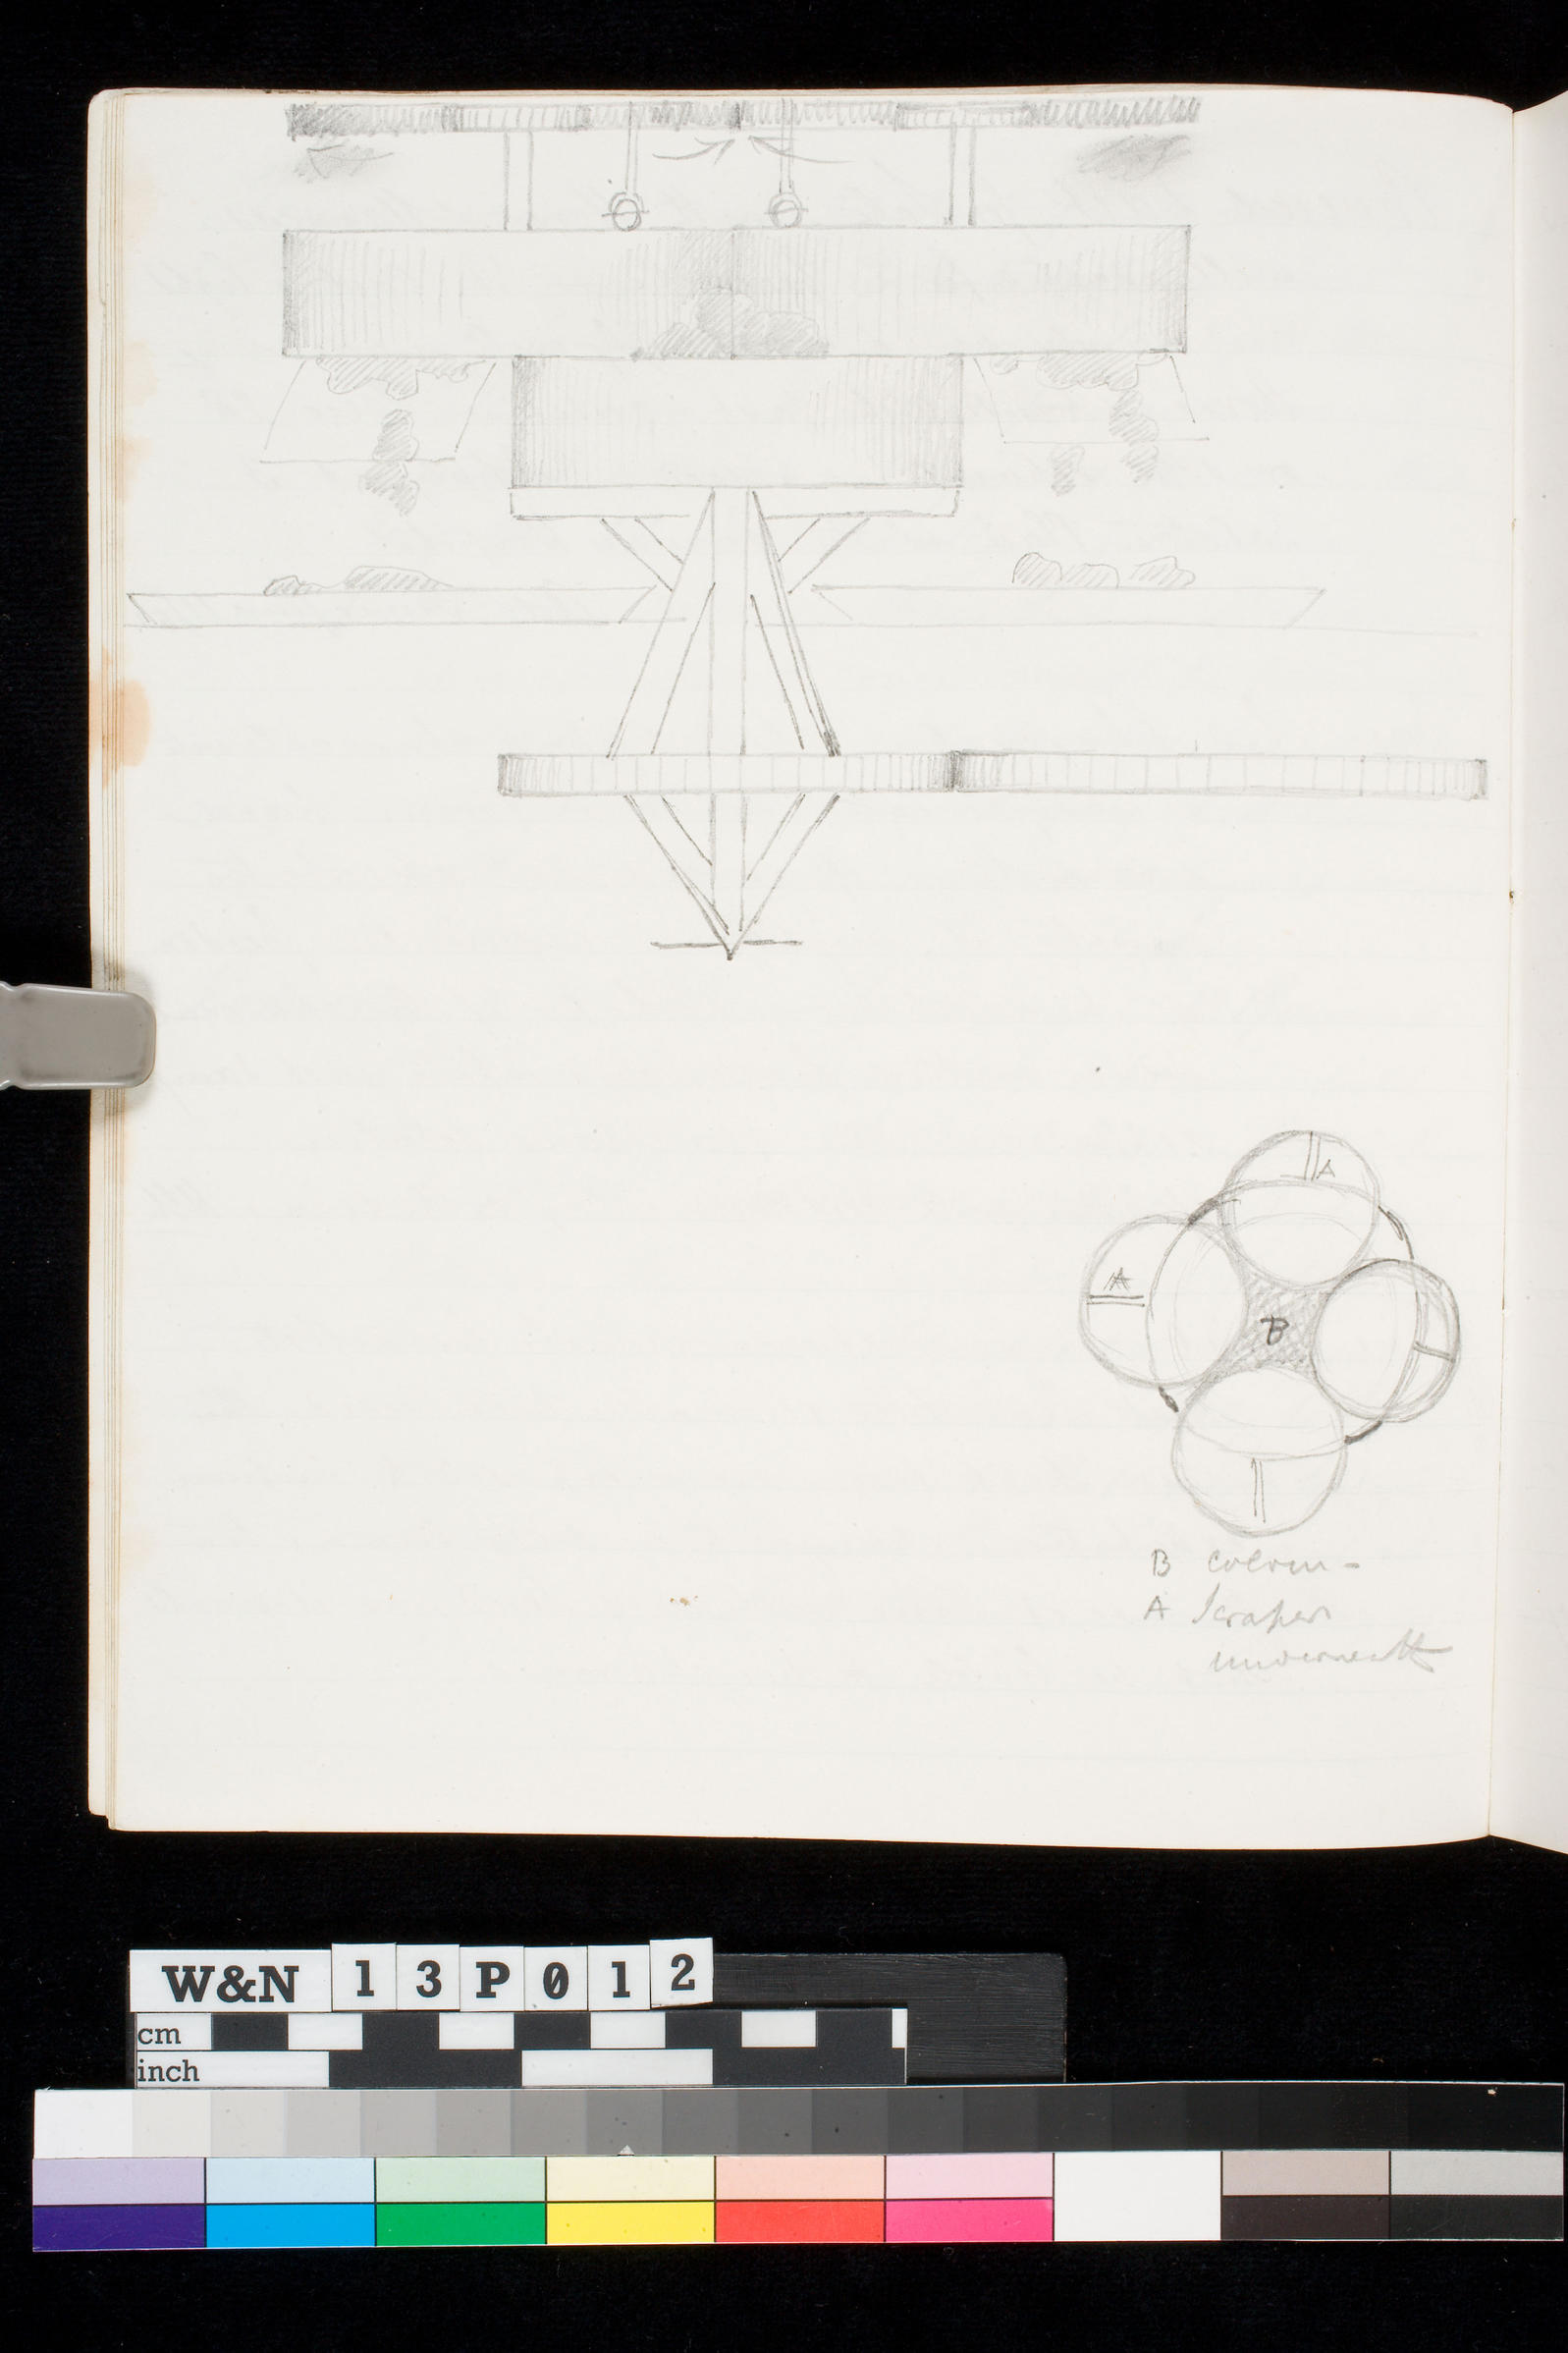 A
A
B
B Colour -
A Scraper
underneath
W&N 13P012
cm
inch